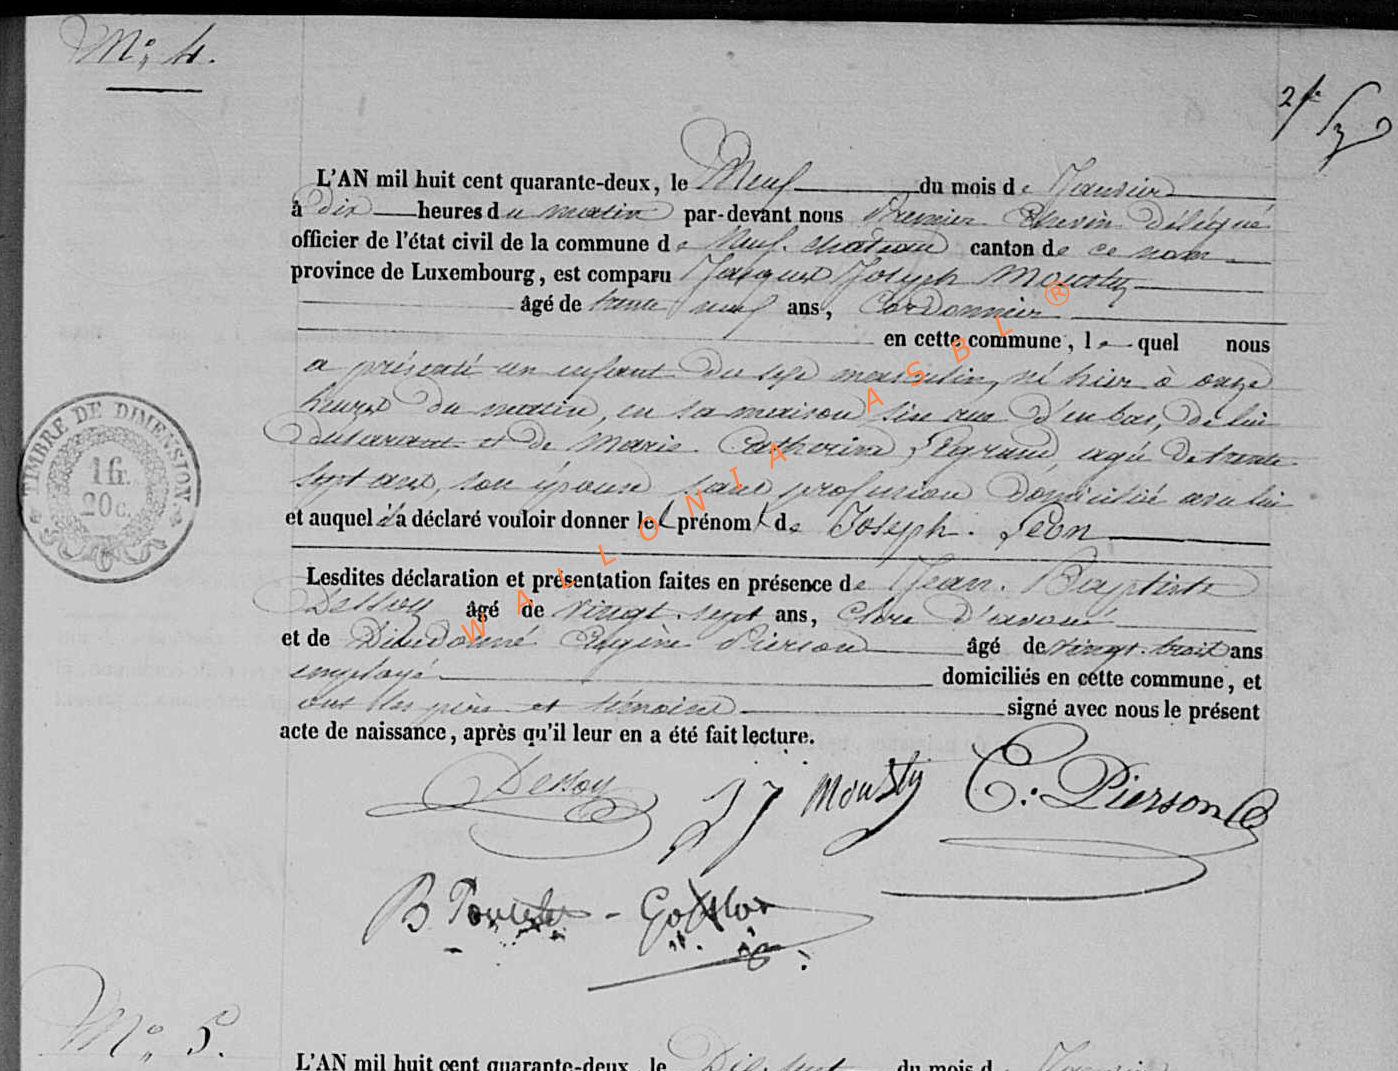 N° 4.
L'AN mil huit cent quarante-deux, le Neuf du mois de Janvier
à dix heures du matin par-devant nous Premier Echevin Délégué
officier de l'état civil de la commune de Neuf-chateau canton de ce nom
province de Luxembourg, est comparu Jacques Joseph Mousty
âgé de trente neuf ans, Cordonnier
en cette commune, lequel nous
a présenté un enfant du sexe masculin, né hier à onze
heures du matin, en sa maison sise rue d'en bas, de lui
déclarant et de Marie Catherine Legrand, agée de trente
sept ans, son épouse sans profession domiciliée avec lui
et auquel il a déclaré vouloir donner le prénom de Joseph. Léon
Lesdites déclaration et présentation faites en présence de Jean. Baptiste
Dessoy âgé de vingt. sept ans, Clerc d'avoué
et de Dieudonné Eugène Pierson âgé de vingt. trois ans
employé domiciliés en cette commune, et
ont les père et témoins signé avec nous le présent
acte de naissance, après qu'il leur en a été fait lecture.
Dessoy JJ Mousty E. Pierson
TIMBRE DE DIMENSION
1 fr.
20 c.
WALLONIA ASBL ®
N° 5.
L'AN mil huit cent quarante-deux, le Dix-sept du mois d Janvier